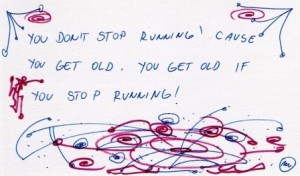 YOU DON'T STOP RUNNING! CAUSE
YOU GET OLD. YOU GET OLD IF
YOU STOP RUNNING!